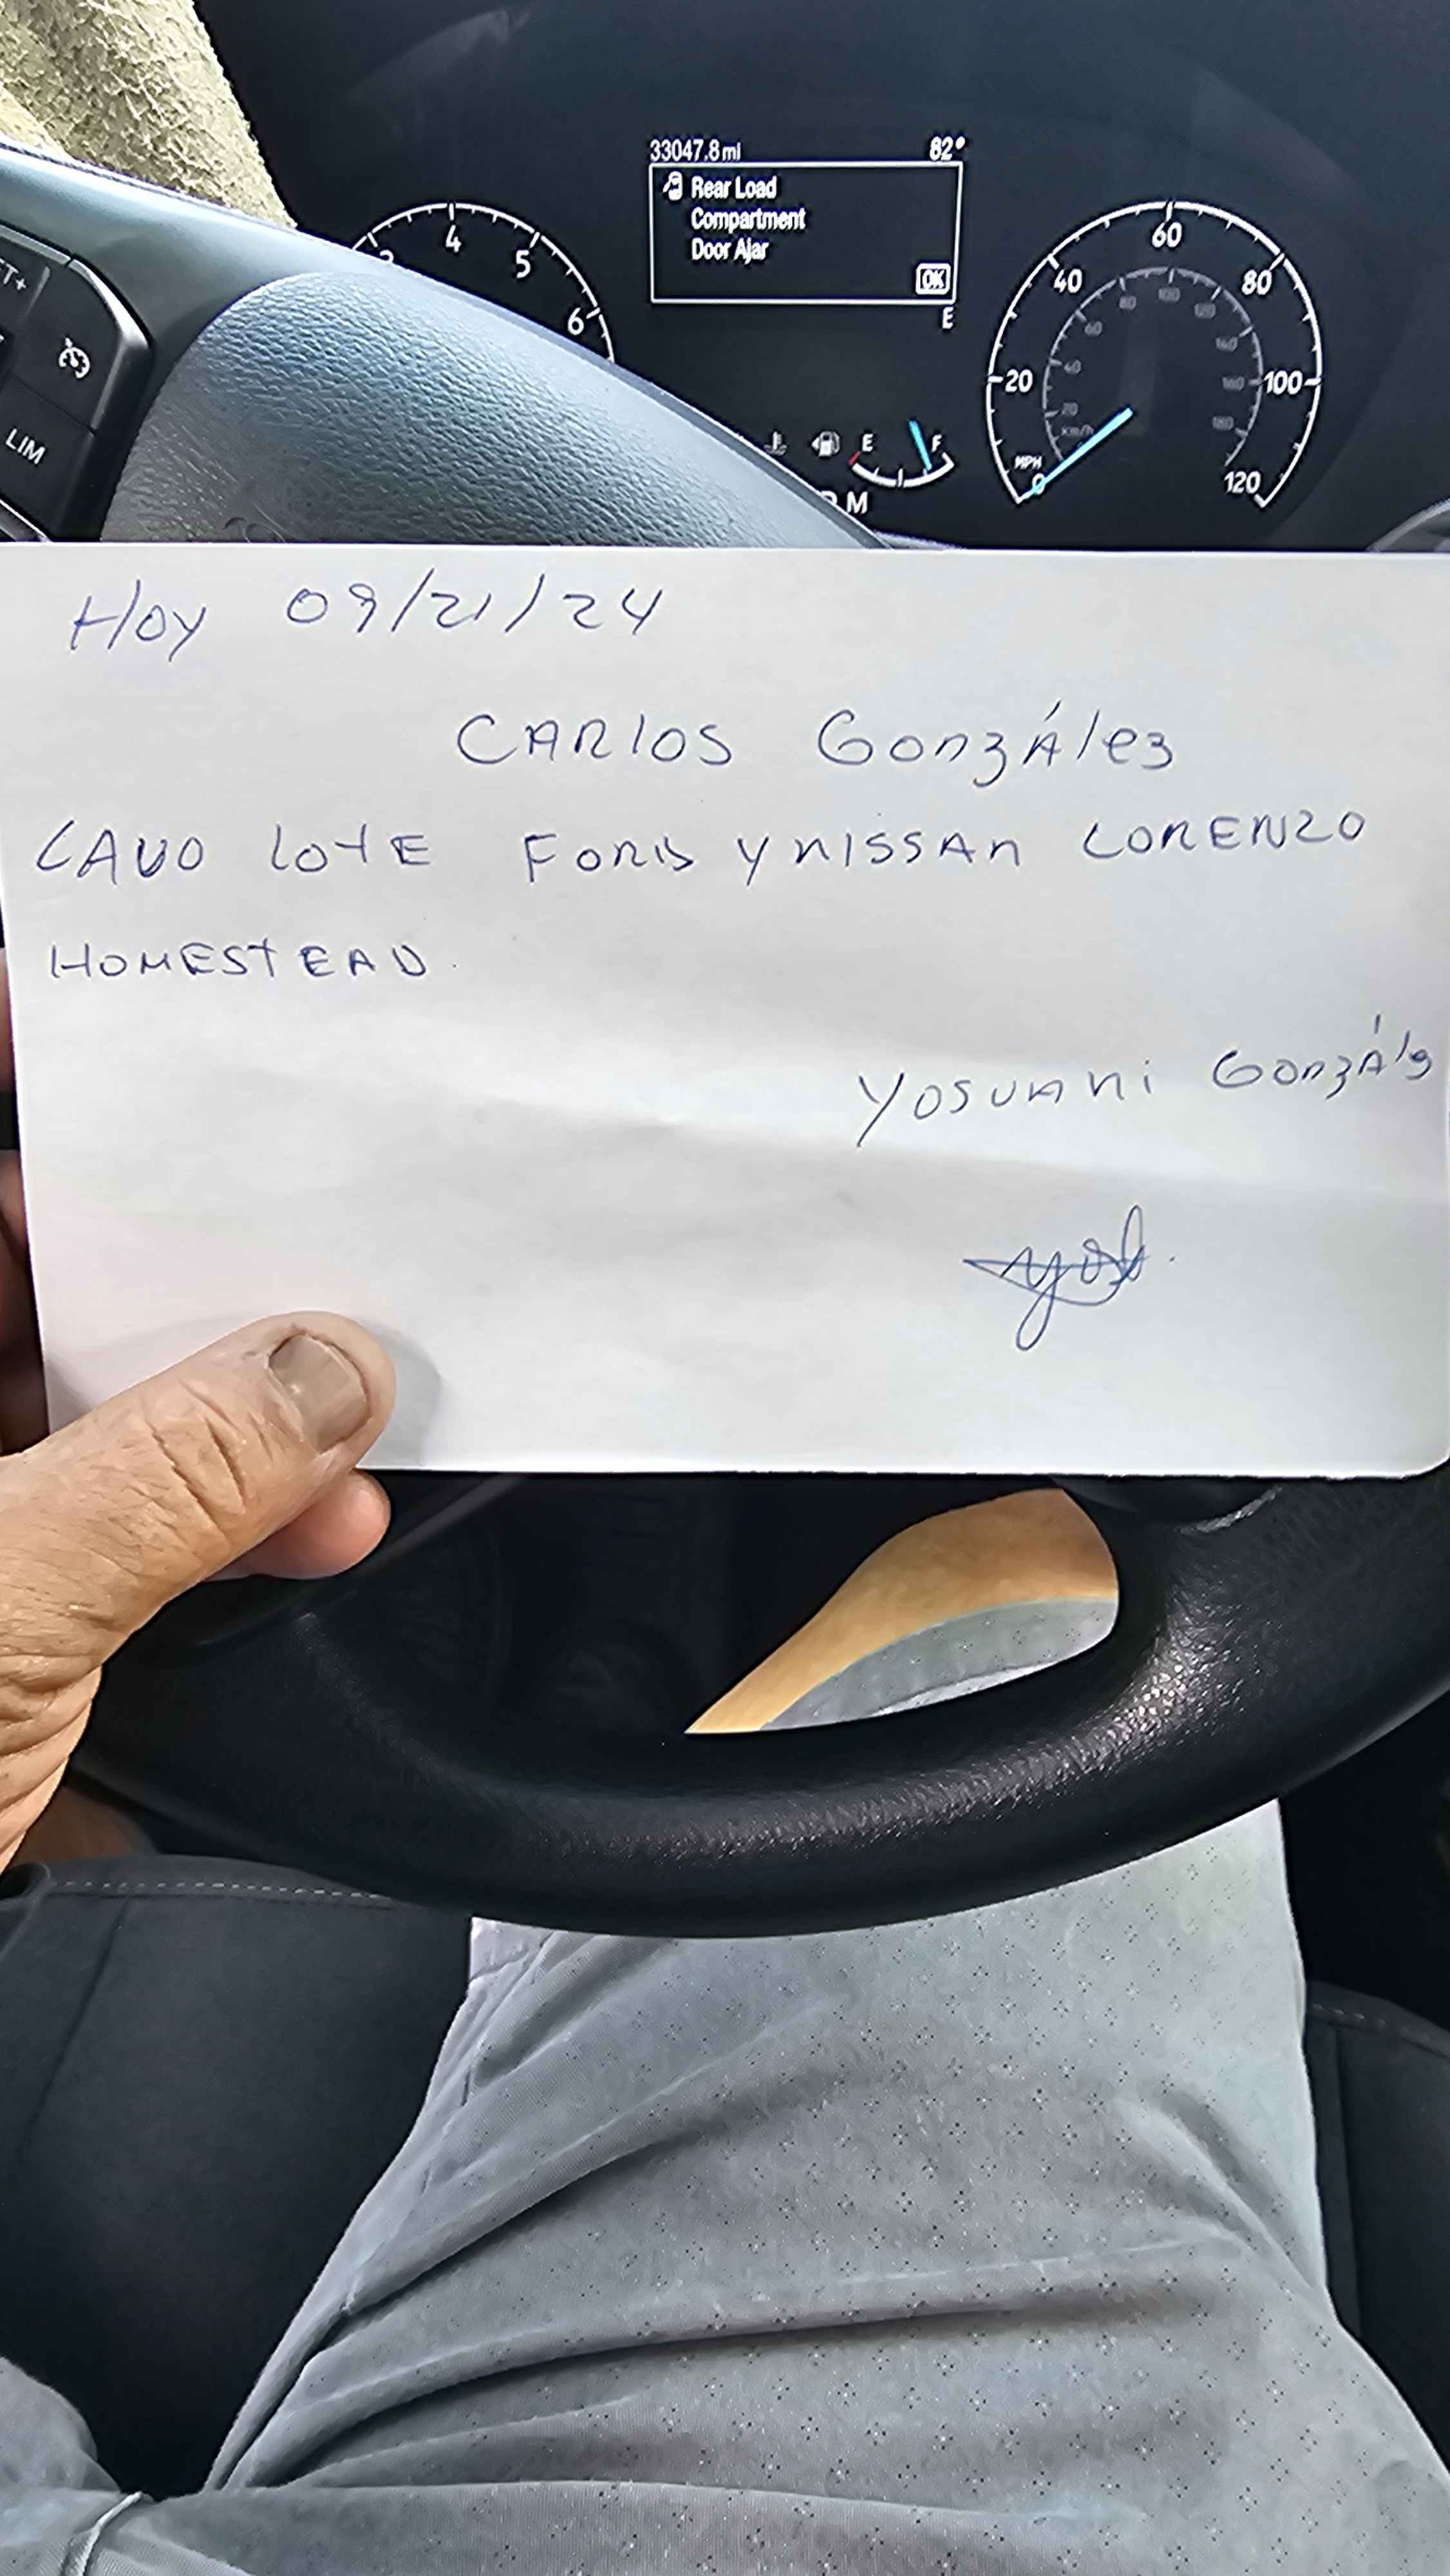 33047.8 mi 82°
Rear Load
Compartment
Door Ajar
OK
E
4 5 6
20 40 60 80 100 120
20 40 60 80 100 120 140 160 180
MPH
km/h
0
E F
M
LIM
Hoy 09/21/24
CARLOS GonzÁlez
LAVO LOTE FORD Y NISSAN LORENZO
HOMESTEAD.
YOSUANI GonzÁlez